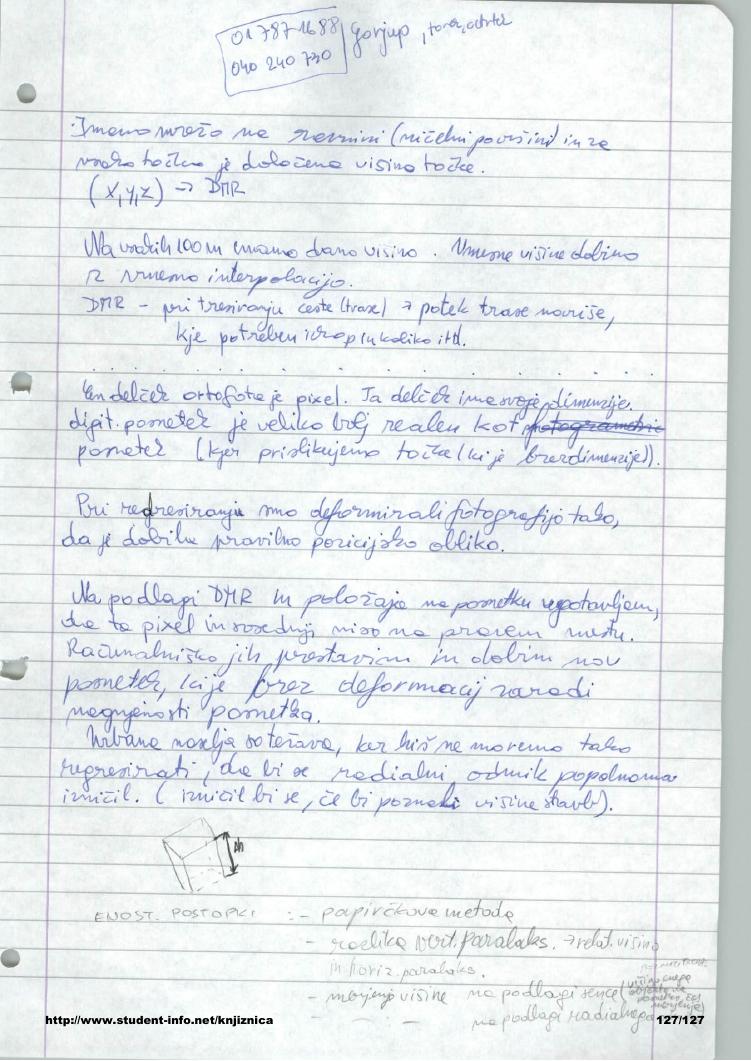 01 787 1688 Gorjup,
040 240 730
Imamo mrežo na ravnini (ničelni površini) in za
vsako točko je določena višina točke.
(x,y,z) → DMR
Na vsakih 100 m imamo dano višino. Vmesne višine dobimo
z vmesno interpolacijo.
DMR - pri trasiranju ceste (trase) → potek trase nariše,
kje potreben izkop in koliko itd.
En delček ortofota je pixel. Ta delček ima svoje dimenzije.
digit. posnetek je veliko bolj realen kot fotogrametric
posnetek (kjer prislikujemo točke (ki je brezdimenzije)).
Pri redresiranju smo deformirali fotografijo tako,
da je dobila pravilno pozicijsko obliko.
Na podlagi DMR in položaja na posnetku ugotavljam,
da ta pixel in sosednji niso na pravem mestu.
Računalniško jih prestavim in dobim nov
posnetek, ki je brez deformacij zaradi
nagnjenosti posnetka.
Urbana naselja so težava, ker hiš ne moremo tako
regresirati, da bi se radialni odmik popolnoma
izničil. (izničil bi se, če bi poznali višine stavb).
Δh
ENOST. POSTOPKI : - papirčkova metoda
- razlika vert. paralaks. → relat. višina
in horiz. paralaks.
- merjenje višine na podlagi sence (višino enega
objekta na
- " - na podlagi radialnega
http://www.student-info.net/knjiznica
127/127